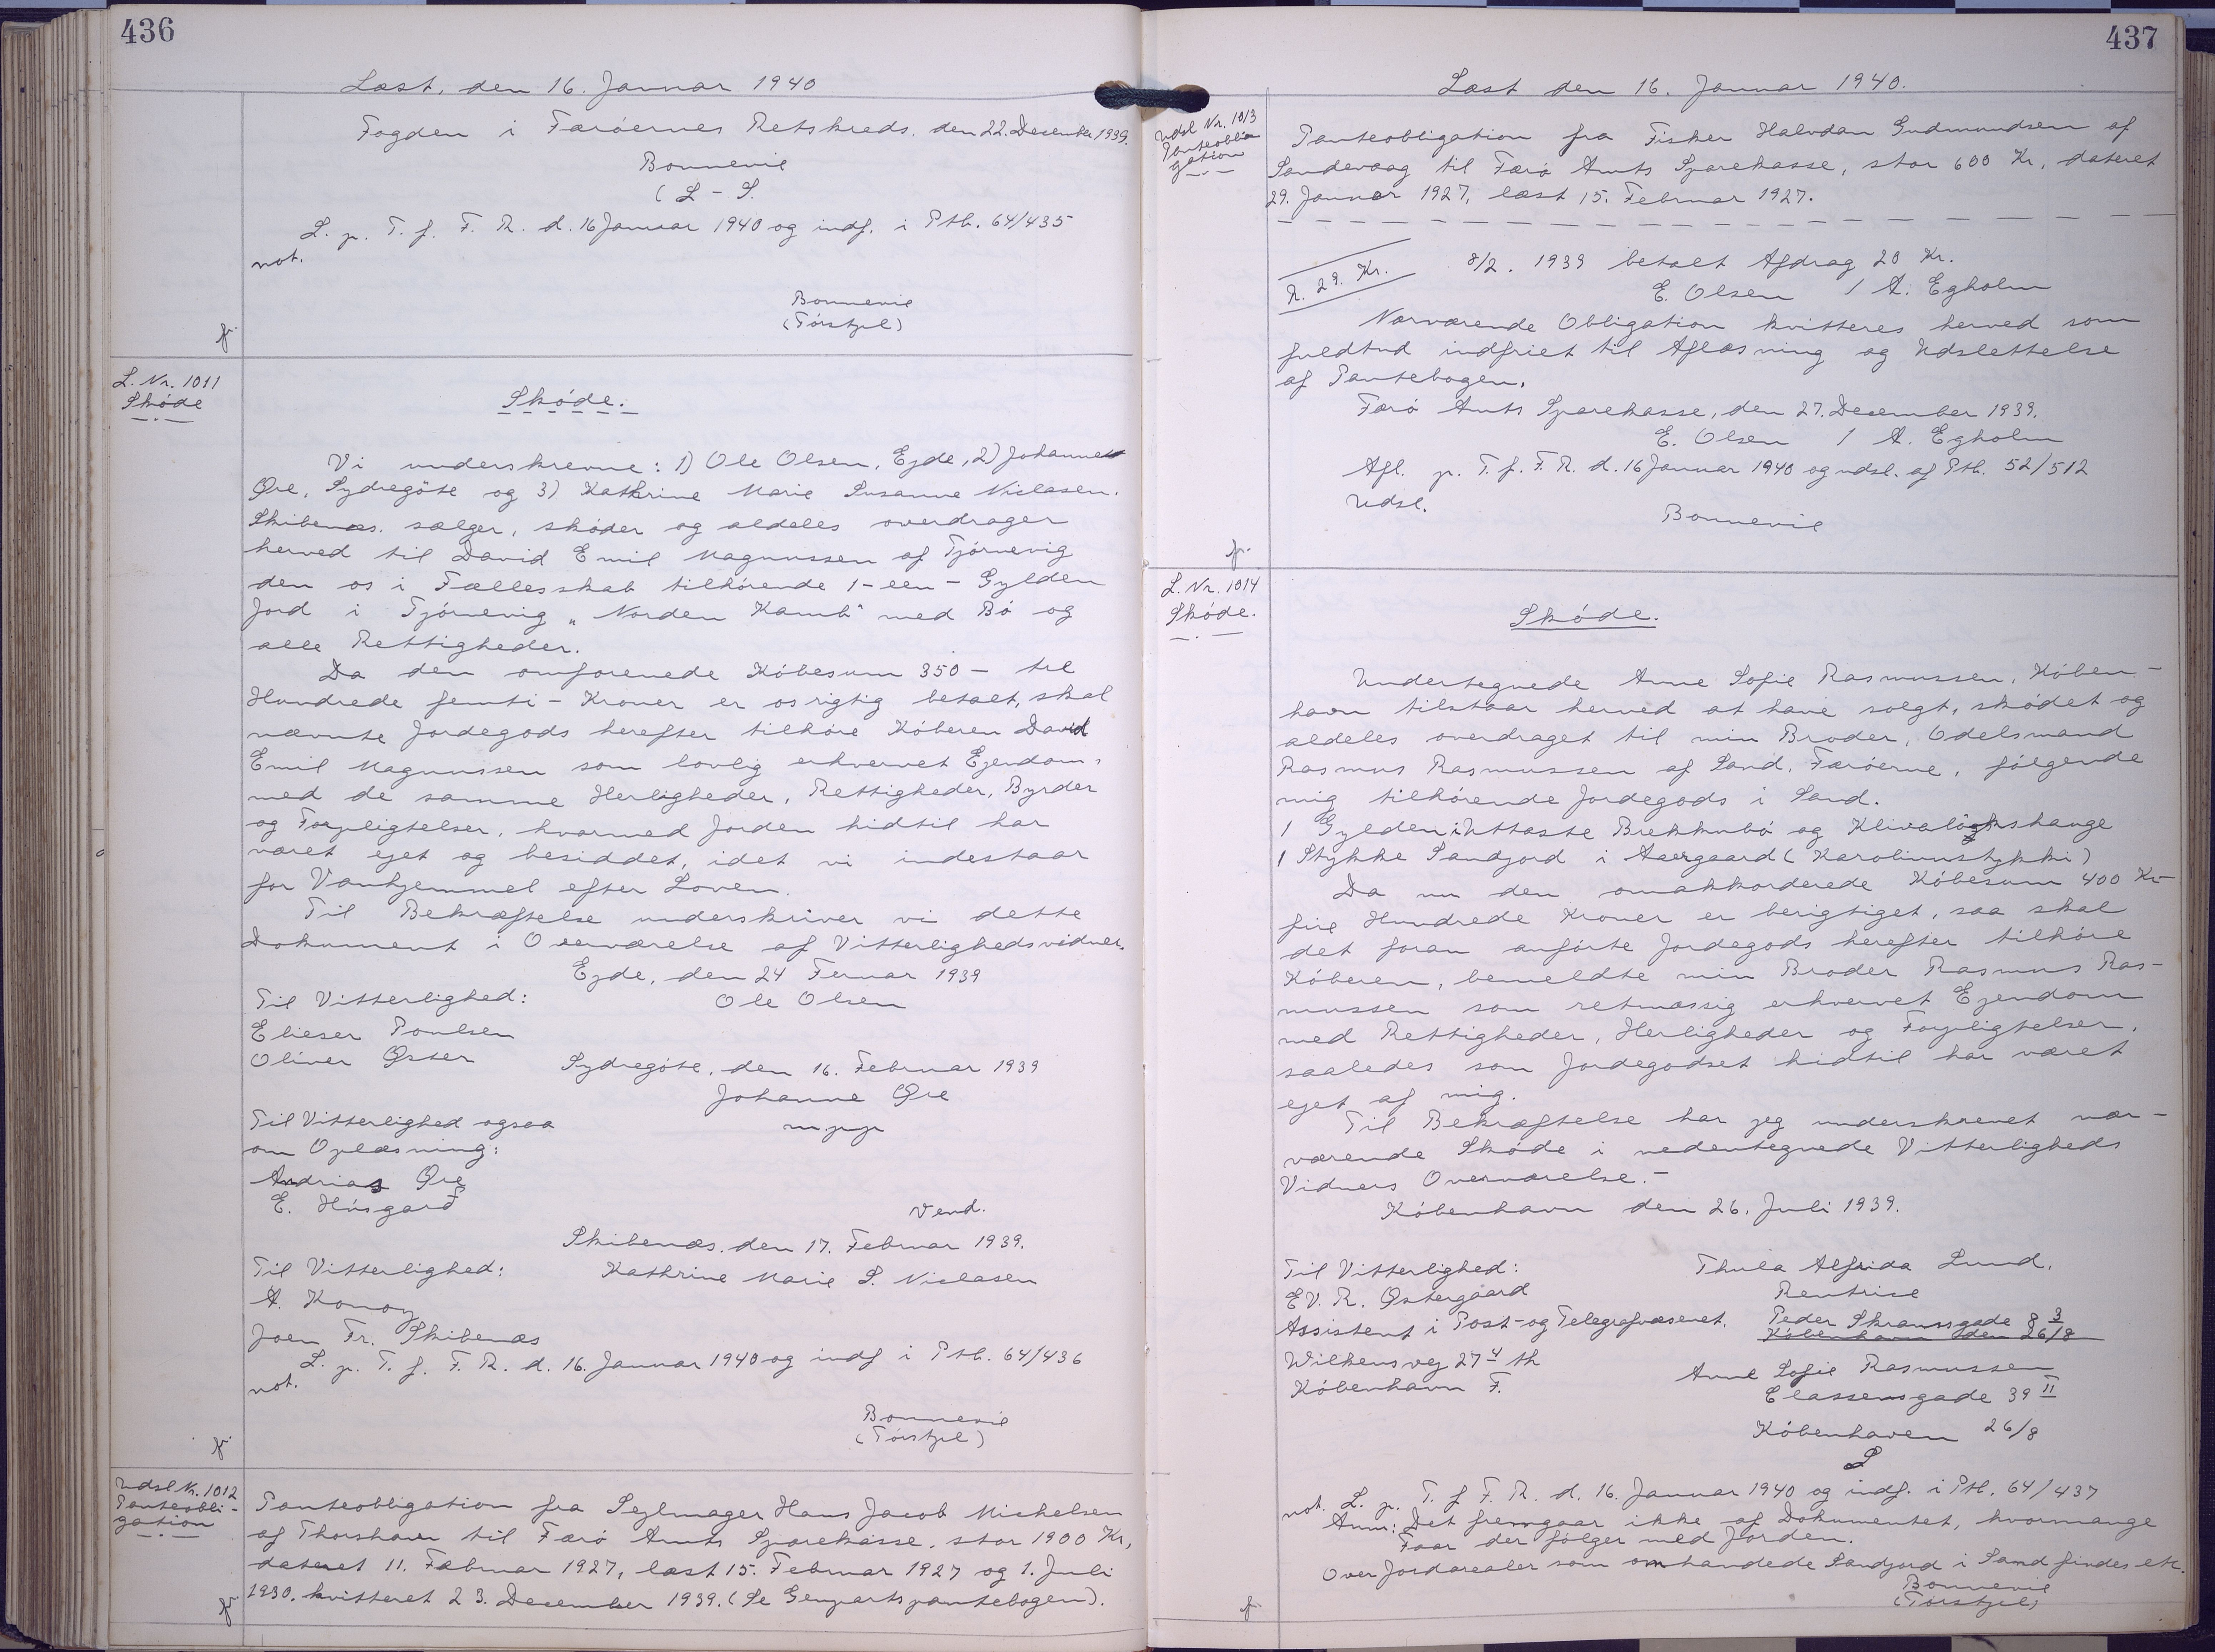 436
Læst, den 16. Januar 1940
Fogden i Færöernes Retskreds, den 22. Desember 1939.
Bonnevie
( L - S.
L. p. T. f. F. R. d. 16 Januar 1940 og indf. i Ptb. 64/435
not.
Bonnevie
(Tórstjel)
L. Nr. 1011
Sköde
Sköde.
Vi underskrevne: 1) Ole Olsen, Ejde, 2) Johanne
Øre, Sydregöte og 3) Kathrine Marie Susanne Niclasen.
Skibenæs. sælger, sköder og aldeles overdrager
herved til David Emil Magnussen af Tjörnevig
den os i Fællesskab tilhörende 1-een- Gylden
Jord i Tjörnevig „Norden Kamb" med Bö og
alle Rettigheder.
Da den omforenede Köbesum 350 - tre
Hundrede femti - Kroner er os rigtig betalt, skal
nævnte Jordegods herefter tilhöre Köberen David
Emil Magnussen som lovlig erhvervet Ejendom,
med de samme Herligheder, Rettigheder, Byrder
og Forpligtelser, hvormed Jorden hidtil har
været ejet og besiddet, idet vi indestaar
for Vanhjemmel efter Loven.
Til Bekræftelse underskriver vi dette
Dokument i Overværelse af Vitterlighedsvidner.
Ejde, den 24 Feruar 1939
Til Vitterlighed: Ole Olsen
Elieser Poulsen
Oliver Øster
Sydregöte, den 16. Februar 1939
Johanne Øre
Til Vitterlighed ogsaa m.p.p.
om Oplæsning:
Andrias Øre
E. Húsgarð
Vend.
Skibenæs. den 17. Februar 1939.
Til Vitterlighed: Kathrine Marie S. Niclasen
A. Konoy
Joen Fr. Skibenæs
L. p. T. f. F. R. d. 16. Januar 1940 og indf i Ptb. 64/436
not.
Bonnevie
(Tórstjel)
Udsl Nr. 1012
Panteobli-
gation
Panteobligation fra Sejlmager Hans Jacob Michelsen
af Thorshavn til Færö Amts Sparekasse, stor 1900 Kr,
dateret 11. Fæbruar 1927, læst 15. Februar 1927 og 1. Juli
1930. kvitteret 23. December 1939. (Se Genpartspantebogen).
437
Læst den 16. Januar 1940.
Udsl Nr. 1013
Panteobli
gation
Panteobligation fra Fisker Halvdan Gudmundsen af
Sandevaag til Færö Amts Sparekasse, stor 600 Kr, dateret
29. Januar 1927, læst 15. Februar 1927.
R. 29. Kr.
8/2. 1939 betalt Afdrag 20 Kr.
E. Olsen / A. Egholm
Nærværende Obligation kvitteres herved som
fuldtud indfriet til Aflæsning og Udslettelse
af Pantebogen.
Færö Amts Sparekasse, den 27. December 1939.
E. Olsen / A. Egholm
Afl. p. T. f. F. R. d. 16 Januar 1940 og udsl. af Ptb. 52/512
Udsl.
Bonnevie
L. Nr. 1014
Sköde.
Sköde.
Undertegnede Anne Sofie Rasmussen, Köben-
havn tilstaar herved at have solgt, sködet og
aldeles overdraget til min Broder, Odelsmand
Rasmus Rasmussen af Sand, Færöerne, fölgende
mig tilhörende Jordegods i Sand.
1 Gylden i Uttaste Brekkubö og Klivalögshange
1 Stykke Sandjord i Aaergaard (Karolinustykki)
Da nu den omakkorderede Köbesum 400 Kr
fire Hundrede Kroner er berigtiget, saa skal
det foran anförte Jordegods herefter tilhöre
Köberen, bemeldte min Broder Rasmus Ras-
mussen som retmæssig erhvervet Ejendom
med Rettigheder, Herligheder og Forpligtelser,
saaledes som Jordegodset hidtil har været
ejet af mig.
Til Bekræftelse har jeg underskrevet nær-
værende Sköde i nedentegnede Vitterligheds
Vidners Overværelse.-
Köbenhavn den 26. Juli 1939.
Til Vitterlighed: Thula Alfrida Lund,
E V. R. Østergaard Rentrice
Assistent i Post- og Telegrafvæsenet. Peder Skramsgade 8 3
Köbenhavn den 26/8
Wilkensvej 27 4 th
Köbenhavn F.
Anne Sofie Rasmussen
Classensgade 39 II
Köbenhaven 26/8
not. L. p. T. f F. R. d. 16. Januar 1940 og indf. i Ptb. 64/437
Anm: Det fremgaar ikke af Dokumentet, hvormange
Faar der fölger med Jorden.
Over Jordarealer som omhandlede Sandjord i Sand findes etc.
Bonnevie
(Tórstjel)